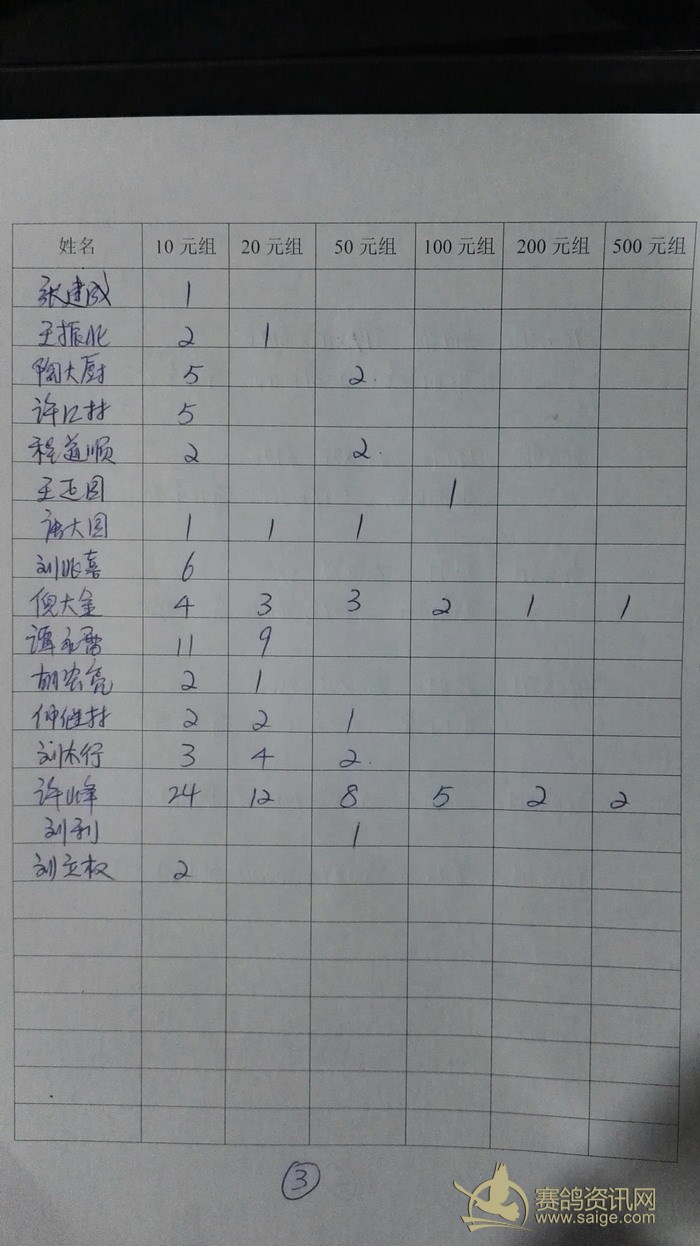 姓名 10 元组 20 元组 50 元组 100 元组 200 元组 500 元组
张建成 1
王振兆 2 1
陶大厨 5 2
许江林 5
程道顺 2 2
王正国 1
唐大国 1 1 1
刘兆喜 6
倪大金 4 3 3 2 1 1
谭永雷 11 9
胡宏亮 2 1
仲继林 2 2 1
刘木行 3 4 2
许峰 24 12 8 5 2 2
刘利 1
刘立权 2
③
赛鸽资讯网
www.saige.com